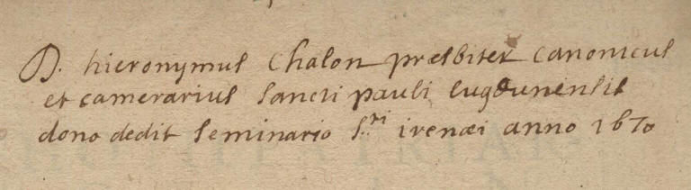 D. hieronymus Chalon præsbiter canonicus
et camerarius sancti pauli lugdunensis
dono dedit seminario S.ti irenæi anno 1670